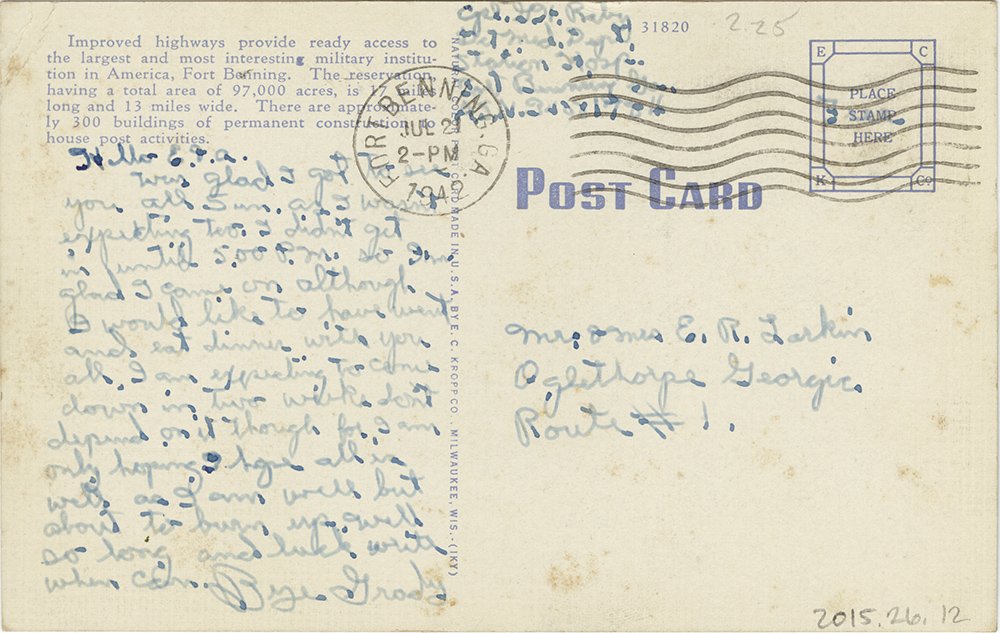 Improved highways provide ready access to
the largest and most interesting military institu-
tion in America, Fort Benning. The reservation,
having a total area of 97,000 acres, is miles
long and 13 miles wide. There are approximate-
ly 300 buildings of permanent construction to
house post activities.
31820
2.25
Station Hosp.
Ft. Benning Ga.
FORT BENNING, GA.
JUL 2
2-PM
1942
E C
PLACE
STAMP
HERE
K Co
POST CARD
Hello
Was glad I got to see
you all Sun. as I wasn't
expecting too. I didn't get
in until 5:00 P.M. so I'm
glad I came on although
I would like to have went
and eat dinner with you
all. I am expecting to come
down in two weeks don't
depend on it though for I am
only hoping. I hope all is
well as I am well but
about to burn up. Well
so long and luck write
when can. Bye Grady
MADE IN U.S.A. BY E. C. KROPP CO., MILWAUKEE, WIS.-(IKY)
Mr. & Mrs E. R. Larkin
Oglethorpe Georgia
Route # 1.
2015.26.12